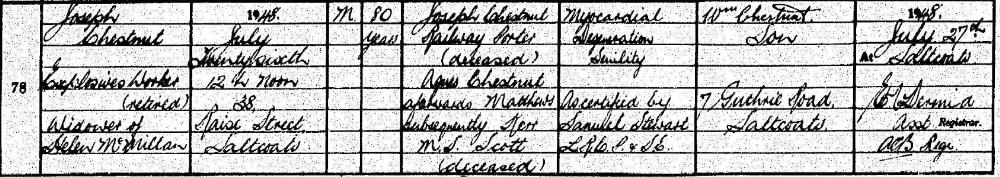 78
Joseph
Chestnut
Explosives Worker
(retired)
Widower of
Helen McMillan
1948.
July
Twenty sixth
12 h Noon
38
Raise Street
Saltcoats
M.
80
years
Joseph Chestnut
Railway Porter
(deceased)
Agnes Chestnut
afterwards Matthews
subsequently Kerr
M.S. Scott
(deceased)
Myocardial
Degeneration
Senility
As certified by
Samuel Stewart
L.R.C.P. & S.E.
Wm Chestnut.
Son
7 Guthrie Road,
Saltcoats
1948.
July 27th
At Saltcoats
Dermid
Asst. Registrar.